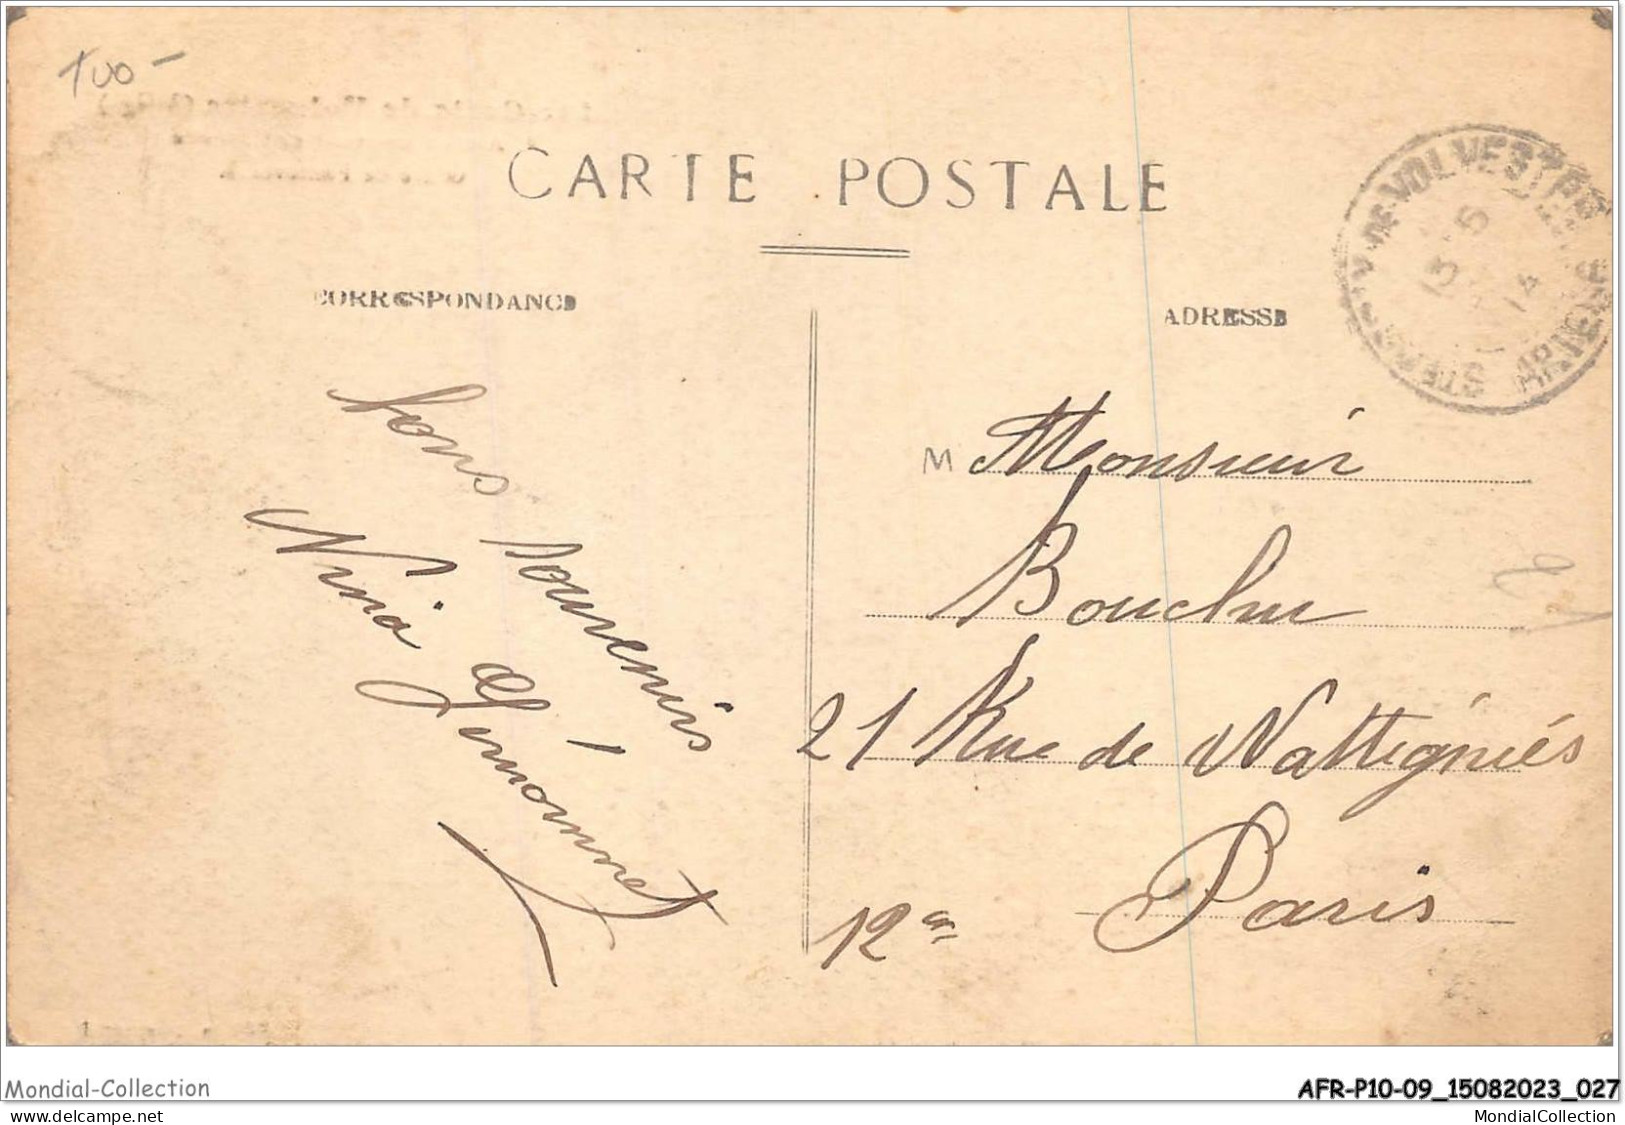 100 -
CARTE POSTALE
CORRESPONDANCE
ADRESSE
STE CROIX DE VOLVESTRE
13 - 5
14
ARIEGE
bons souvenirs
Nina
M Monsieur
Boucher
21 Rue de Wattignies
Paris
12e
Mondial-Collection
delcampe.net
AFR-P10-09_15082023_027
MondialCollection